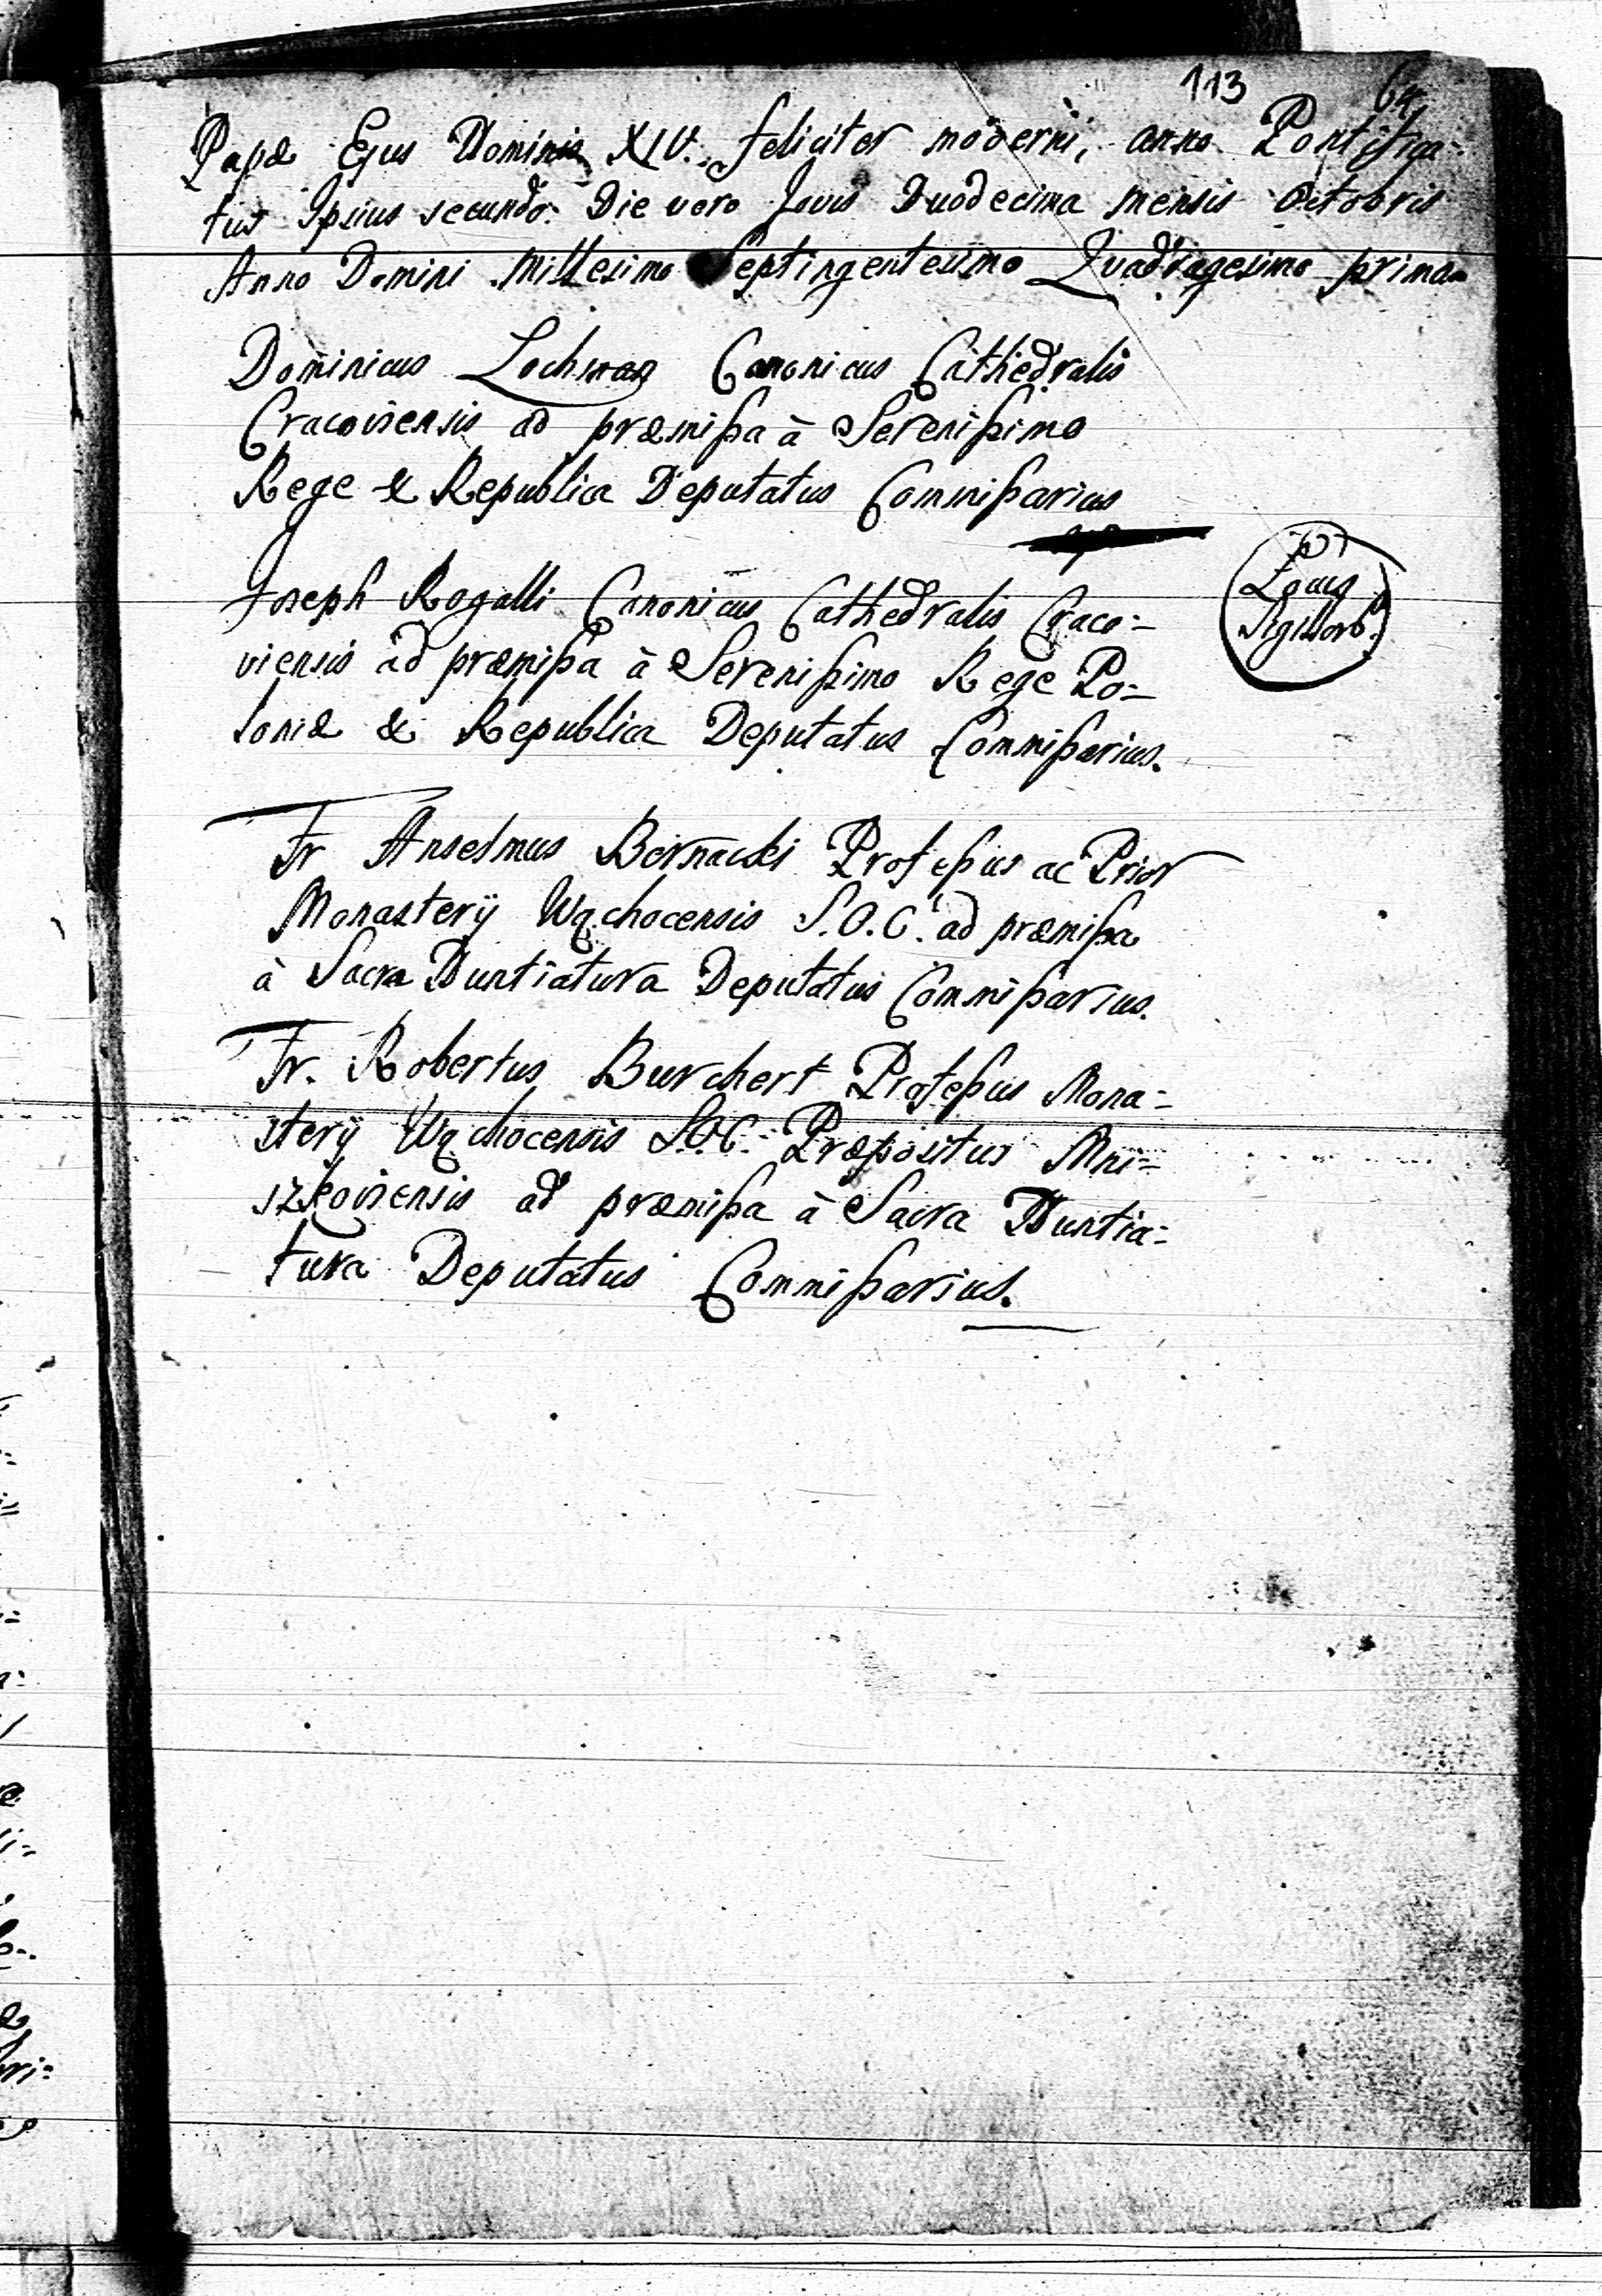 113
64
Papæ Ejus Nominis XIV. feliciter moderni, anno Pontifica-
tus Ipsius secundo. Die vero Jovis Duodecima mensis Octobris
Anno Domini Millesimo Septingentesimo Quadragesimo primo
Dominicus Lochman Canonicus Cathedralis
Cracoviensis ad præmißa à Serenißimo
Rege & Republica Deputatus Commißarius
Joseph Rogalli Canonicus Cathedralis Craco=
viensis ad præmißa à Serenißimo Rege Po=
loniæ & Republica Deputatus Commißarius.
Locus
Sigillorū.
Fr Anselmus Bernacki Profeßus ac Prior
Monasterÿ Wąchocensis S. O. C. ad præmißa
à Sacra Nuntiatura Deputatus Commißarius.
Fr. Robertus Burchert Profeßus Mona=
sterÿ Wąchocensis S.O.C. Præpositus Mni=
szkoviensis ad præmißa à Sacra Nuntia=
tura Deputatus Commißarius.